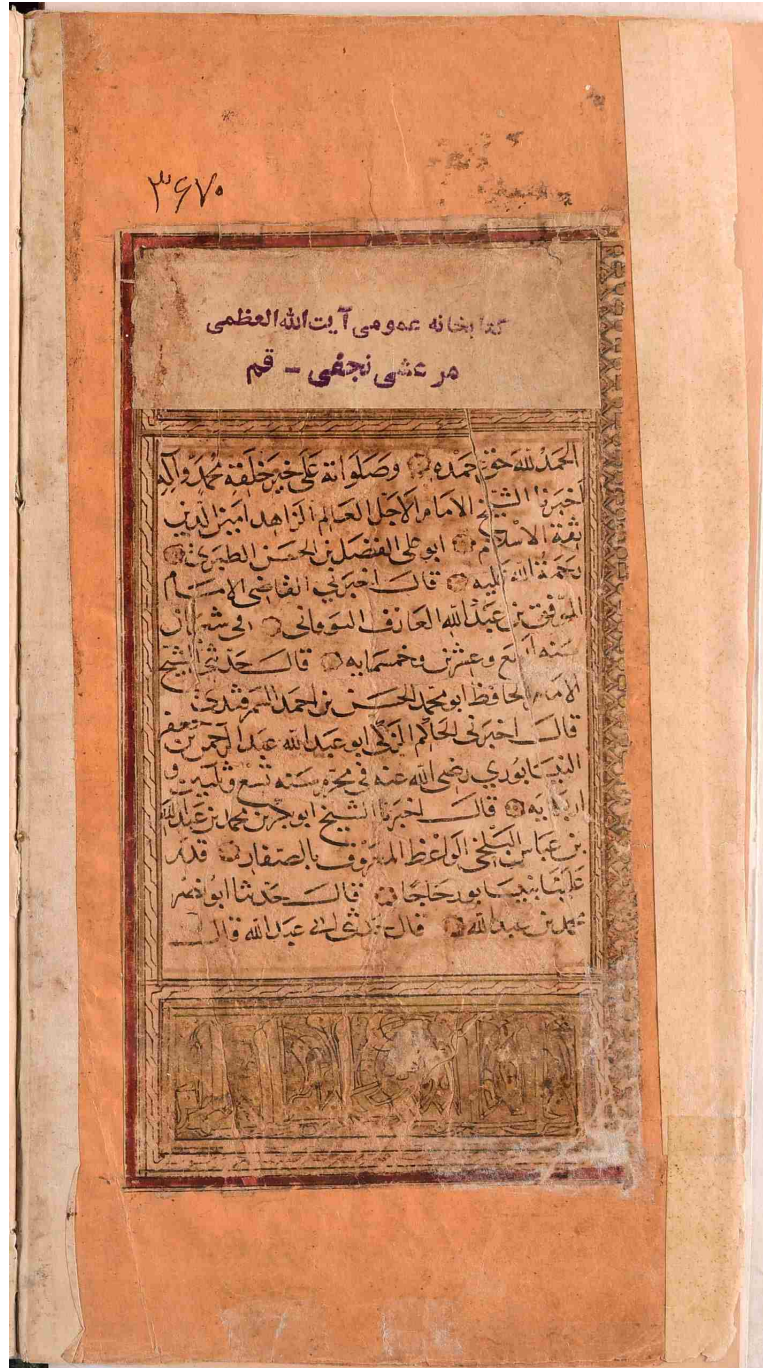 ۳۶۷۰
کتابخانه عمومی آیت الله العظمی
مرعشی نجفی - قم
الحمد لله حق حمده وصلواته على خير خلقه محمد وآله
اخبرنا الشيخ الامام الاجل العالم الزاهد امين الدين
ثقة الاسلام ابو علي الفضل بن الحسن الطبري
رحمة الله عليه قال اخبرني القاضي الامام
الموفق بن عبد الله العارف النوقاني في شهر
سنه اربع وعشرين وخمسمايه قال حدثني الشيخ
الامام الحافظ ابو محمد الحسن بن احمد السمرقندي
قال اخبرني الحاكم الزكي ابو عبد الله عبد الرحمن بن جعفر
النيسابوري رضي الله عنه في محرم سنه تسع وثلثين و
اربعمايه قال اخبرنا الشيخ بن محمد بن عبد الله
بن عباس البلخي الواعظ المعروف بالصفار قدم
علينا بنيسابور حاجا قال حدثنا ابو نصر
محمد بن عبد الله قال حدثني ابي عبد الله قال